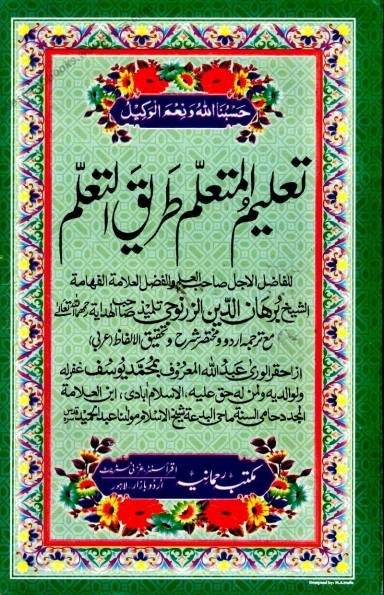 حَسْبُنَا اللّٰهُ وَنِعْمَ الْوَكِيْل
تعلیمُ المتعلّم طریق التعلّم
للفاضل الاجل صاحب العلم والفضل العلامة الفهامة
الشیخ بُرهان الدّین الزرنوجی تلمیذ صاحب الهدایة رحمهما الله تعالیٰ
مع ترجمہ اردو و مختصر شرح و تحقیق الالفاظ (عربی)
از احقر الوریٰ عبد اللّٰه المعروف محمّد یوسف غفرله
ولوالدیه ولمن له حق علیه، الاسلام آبادی، ابن العلامة
المجدد حامی السنة ماحی البدعة شیخ الاسلام مولانا عبد الحمید
مکتبہ رحمانیہ
اقرأ سنٹر غزنی سٹریٹ
اردو بازار۔ لاہور
Designed by: M.A.Hafiz